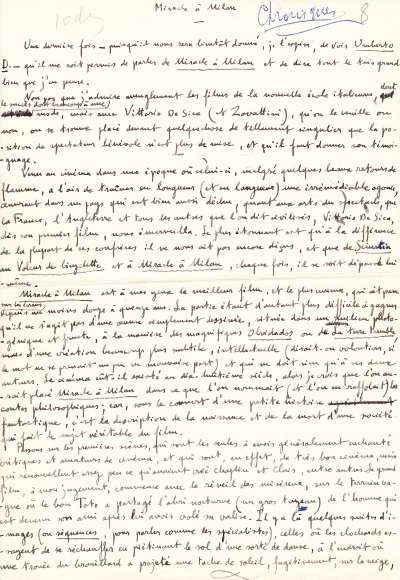 Miracle à Milan
10 dez
Chroniques 8
Une dernière fois — puisqu'il nous sera bientôt donné, je l'espère, de voir Umberto
D. — qu'il me soit permis de parler de Miracle à Milan et de dire tout le très grand
bien que j'en pense.
Non pas que j'admire aveuglément les films de la nouvelle école italienne, dont
le succès doit beaucoup à une
mode, mais avec Vittorio De Sica (et Zavattini), qu'on le veuille ou
non, on se trouve placé devant quelque chose de tellement singulier que la po-
sition de spectateur bénévole n'est plus de mise, et qu'il faut donner son témoi-
gnage.
Venu au cinéma dans une époque où celui-ci, malgré quelques beaux retours de
flamme, a l'air de traîner en longueur (et en langueur) une irrémédiable agonie,
œuvrant dans un pays qui est bien aussi déchu, quant aux arts du spectacle, que
la France, l'Angleterre et tous les autres que l'on dit civilisés, Vittorio De Sica,
dès son premier film, nous émerveilla. Le plus étonnant est qu'à la différence
de la plupart de ses confrères il ne nous ait pas encore déçus, et que de Sciuscia
au Voleur de bicyclette et à Miracle à Milan, chaque fois, il se soit dépassé lui
-même.
Miracle à Milan est à mes yeux le meilleur film, et le plus neuf, qui ait paru
sur les écrans
depuis au moins douze à quinze ans. La partie était d'autant plus difficile à gagner
qu'il ne s'agit pas d'une œuvre simplement située dans un milieu photo-
génique et funeste, à la manière des magnifiques Olvidados ou de La Terre tremble
mais d'une création beaucoup plus subtile, intellectuelle (dirait-on volontiers, si
le mot ne se prenait un peu en mauvaise part) et qui ne doit rien qu'à ses deux
auteurs. Le cinéma eût-il existé au dix-huitième siècle, alors je crois que l'on au-
rait placé Miracle à Milan dans ce que l'on nommait (et l'on en raffolait) les
contes philosophiques; car, sous le couvert d'une petite histoire
fantastique, c'est la description de la naissance et de la mort d'une société
qui fait le sujet véritable du film.
Passons sur les premières scènes, qui sont les seules à avoir généralement enchanté
critiques et amateurs de cinéma, et qui sont, en effet, de très bon cinéma, mais
qui renouvellent assez peu ce qu'avaient créé Chaplin et Clair, entre autres. Le grand
film, à mon jugement, commence avec le réveil des miséreux, sur le terrain va-
gue où le bon Toto a partagé l'abri nocturne (un gros tuyau) de l'homme qui
est devenu son ami après lui avoir volé sa valise. Il y a là quelques suites d'i-
mages (ou séquences, pour parler comme les spécialistes), celles où les clochards es-
sayent de se réchauffer en piétinant le sol d'une sorte de danse, à l'endroit où
une trouée du brouillard a projeté une tache de soleil, fugitivement, sur la neige,